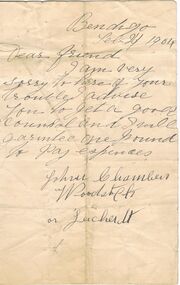 Bendigo
Feb 21 1904
Dear friend
I am very
sorry to hear of your
trouble I advise
you to get a good
Counsel and I will
one Pound
to Pay expences
John Chambers
Woodst
or Leichardt